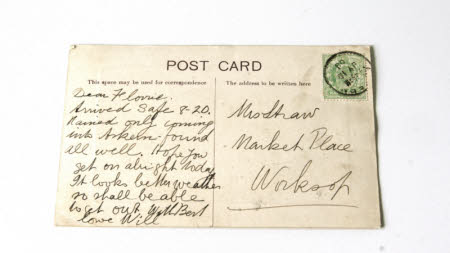 POST CARD
This space may be used for correspondence
The address to be written here
Dear Florrie.
Arrived Safe 8-20.
Rained only coming
into Askern found
all well. Hope you
get on alright today
It looks better weather
so shall be able
to get out With Best
love Will
Mrs Straw
Market Place
Worksop